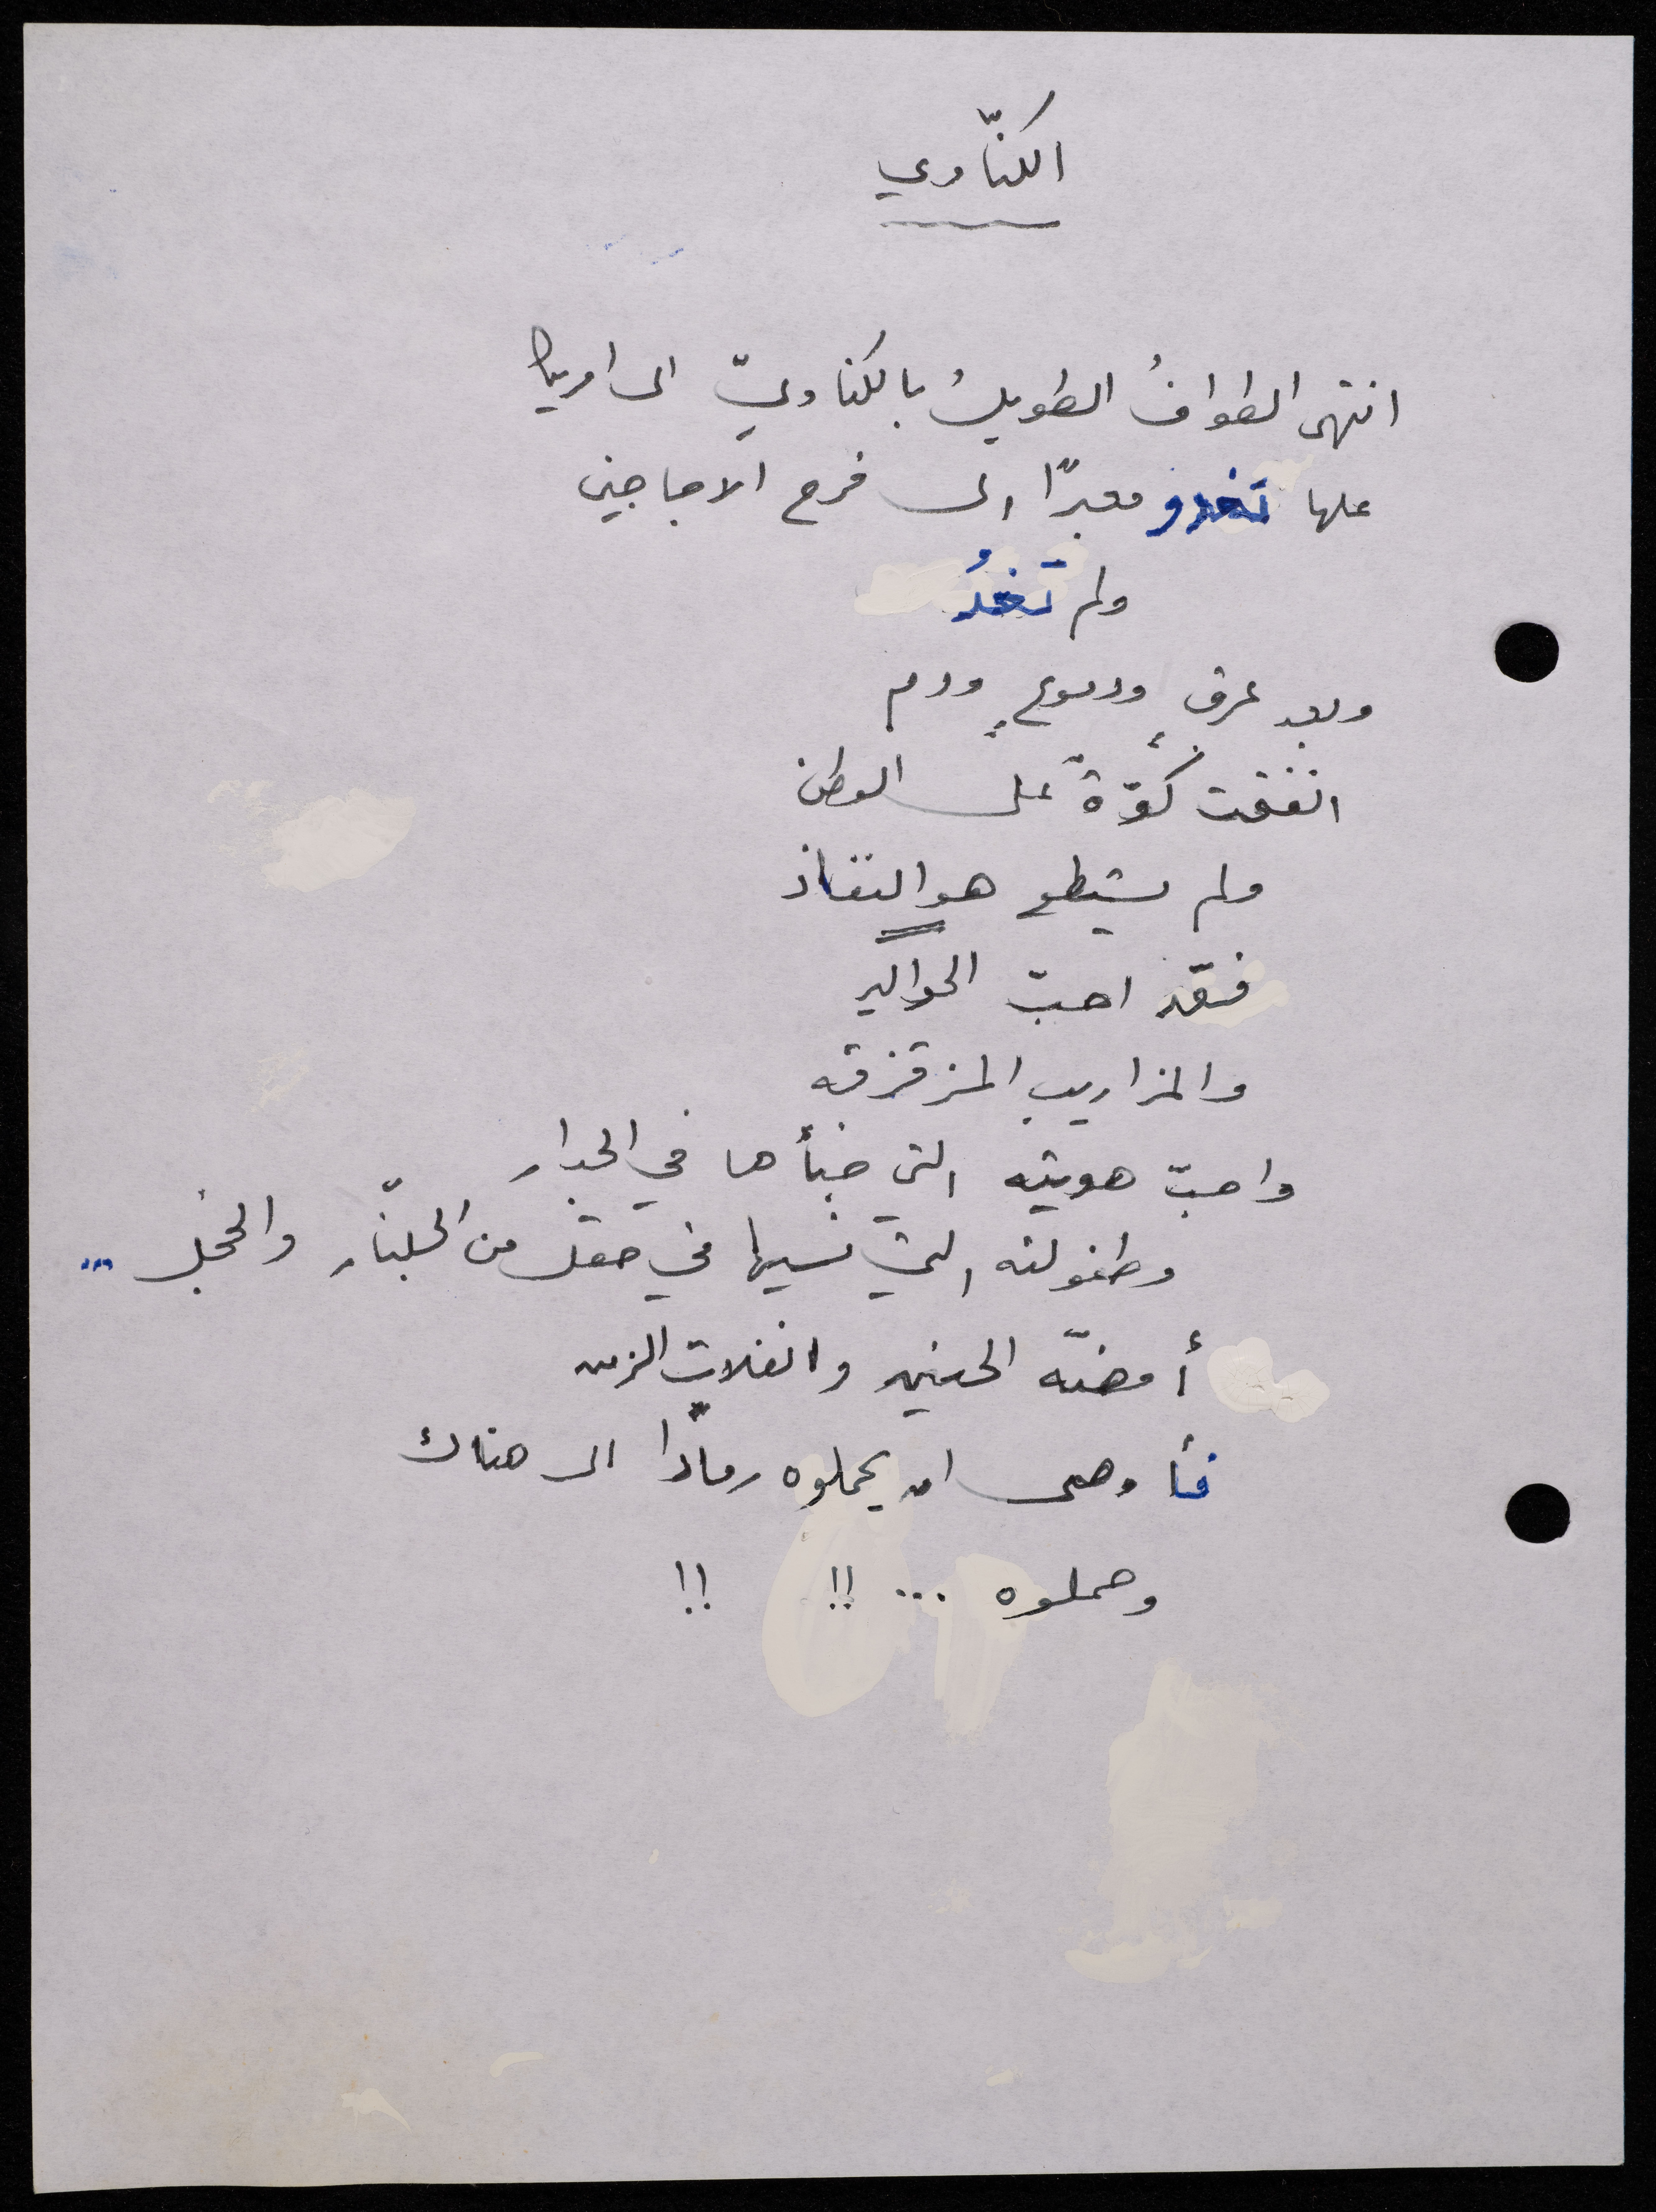 الكنّاوي
انتهى الطوافُ الطويلُ بالكناويّ الى امريكا
علها تغدو معبرًا الى فرح الاجاجين
ولم تغدُ
وبعد عرقٍ ودموعٍ ودم
انفتحت كوّةً على الوطن
ولم يستطع هو النفاذ
فقد احبّ الحواكير
والمزاريب المزقزقه
واحبّ هويته التي خبأها في الجدار
وطفولته التي نسيها في حقل من الجلنّار والخجل ...
أمضّه الحنين وانفلات الزمن
فأوصى ان يحملوه رمادًا الى هناك
وحملوه ... !! !!